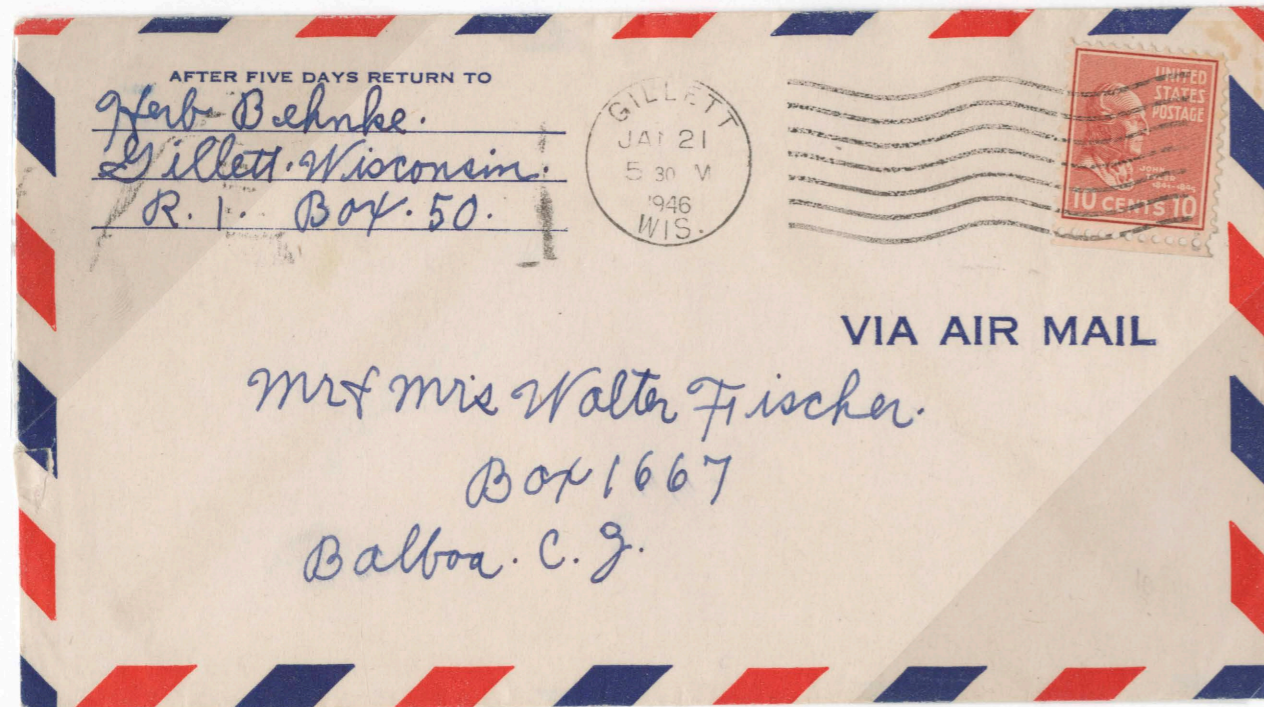 AFTER FIVE DAYS RETURN TO
Herb Behnke.
Gillett. Wisconsin.
R. 1. Box. 50.
GILLETT
JAN 21
5 30 M
1946
WIS.
UNITED
STATES
POSTAGE
JOHN
10 CENTS 10
VIA AIR MAIL
Mr & Mrs Walter Fischer.
Box 1667
Balboa. C. Z.